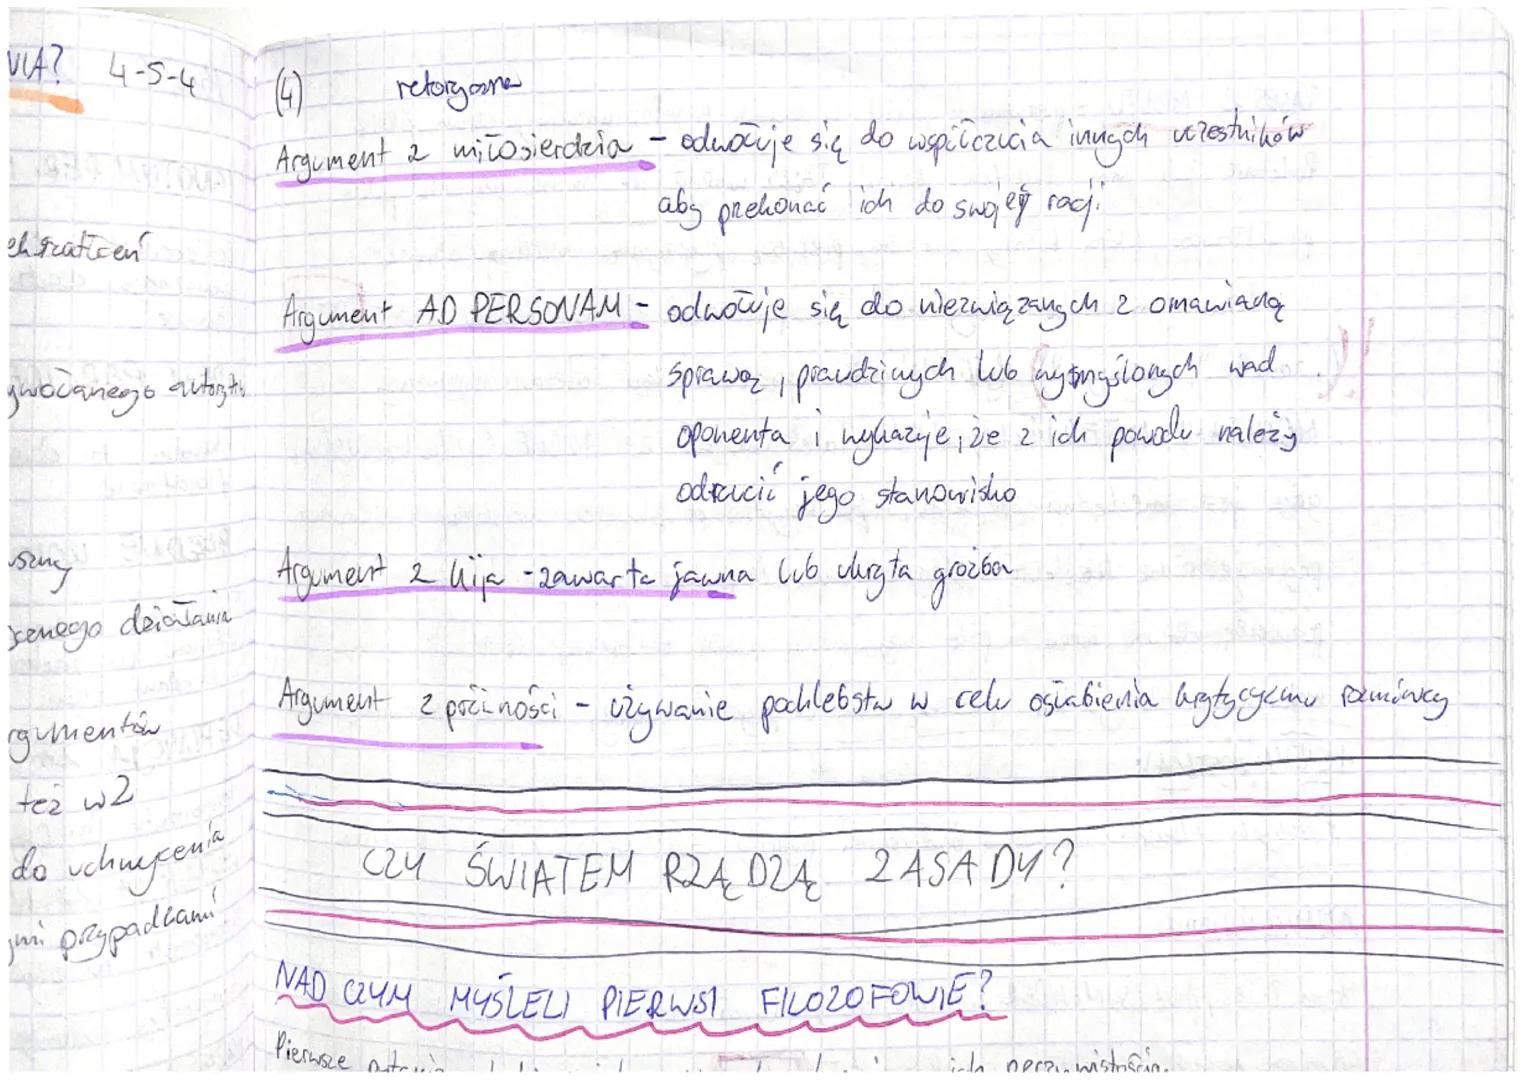 VIA? 4-5-4
ekształceń
ywołanego autoryt
cznego działania
rgumentów
też w 2
do uchwycenia
ymi przypadkami
(4) retoryczne
Argument z miłosierdzia - odwołuje się do współczucia innych uczestników
aby przekonać ich do swojej racji
Argument AD PERSONAM - odwołuje się do niezwiązanych z omawianą
sprawą, prawdziwych lub wymyślonych wad
oponenta i wykazuje, że z ich powodu należy
odrzucić jego stanowisko
Argument z kija - zawarta jawna lub ukryta groźba
Argument z próżności - używanie pochlebstw w celu osłabienia krytycyzmu rozmówcy
CZY ŚWIATEM RZĄDZĄ ZASADY?
NAD CZYM MYŚLELI PIERWSI FILOZOFOWIE?
Pierwsze